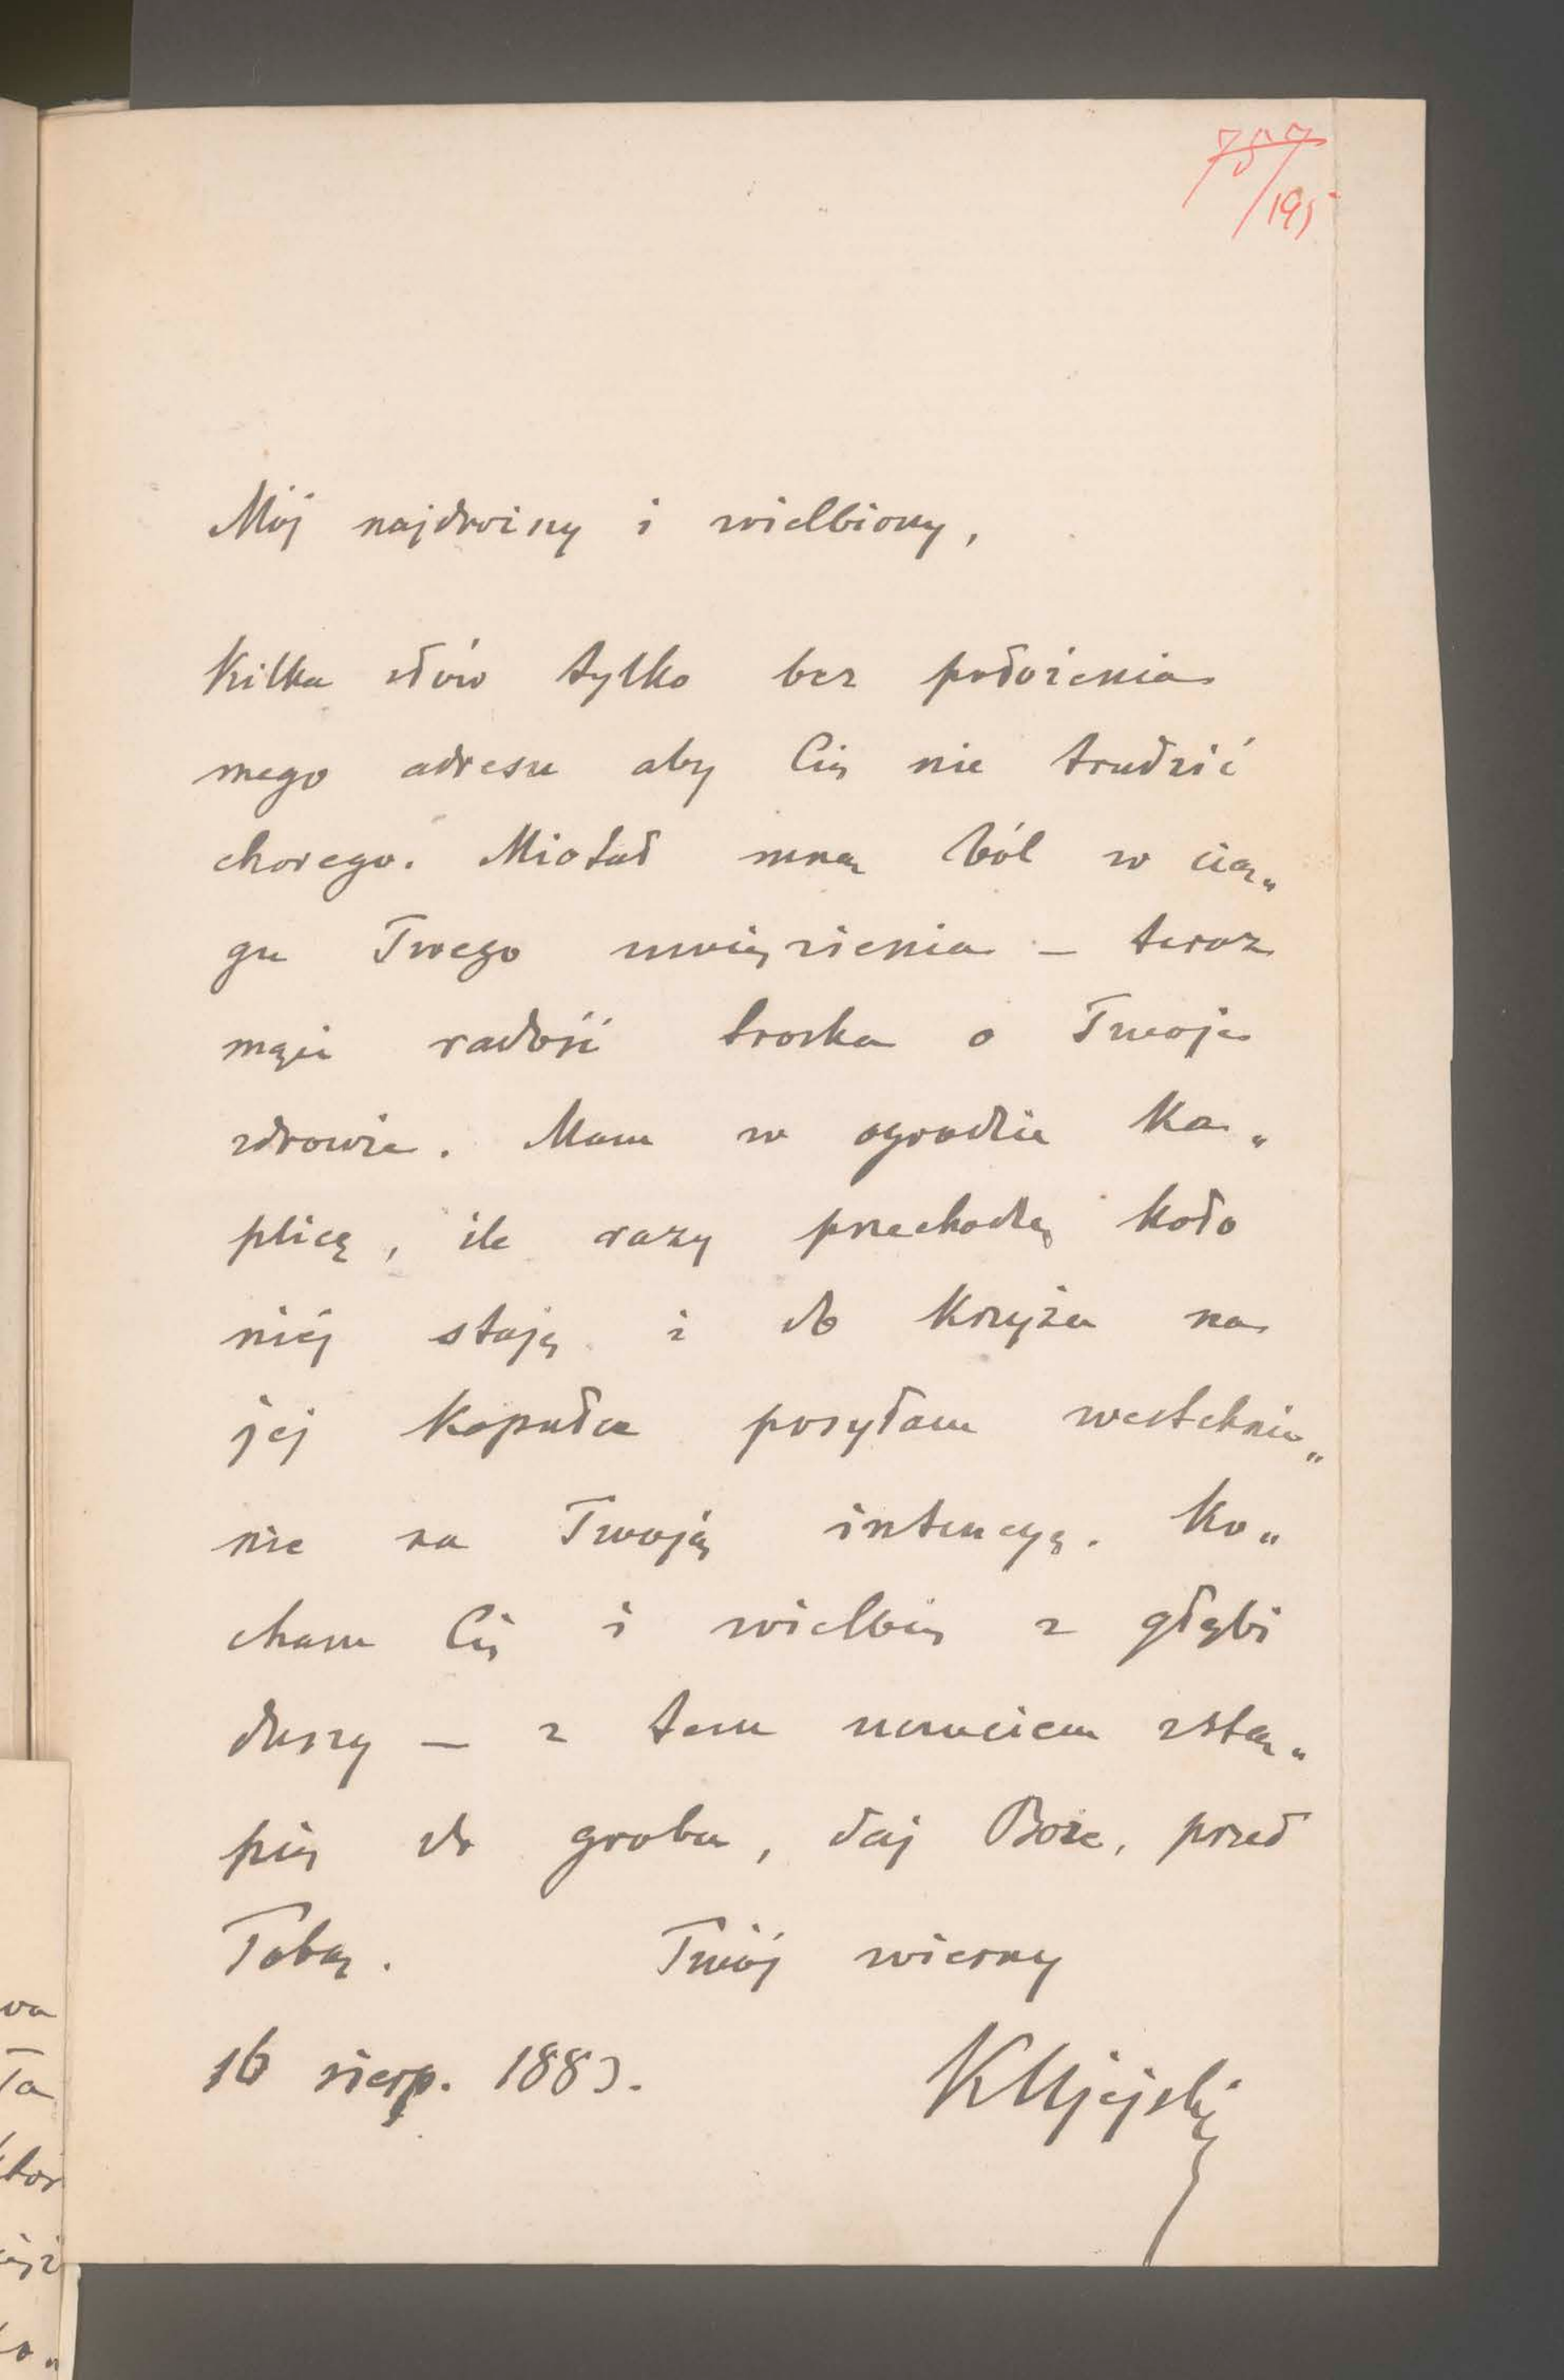 757
/195
Mój najdroższy i wielbiony,
Kilka słów tylko bez położenia
mego adresu aby Cię nie trudzić
chorego. Miotał mną ból w cią„
gu Twego uwięzienia — teraz
mąci radość troska o Twoje
zdrowie. Mam w ogrodzie ka„
plicę, ile razy przechodzę koło
niéj staję i do krzyża na
jej kopułce posyłam westchnie„
nie na Twoję intencyę. Ko„
cham Cię i wielbię z głębi
duszy — z tem uczuciem zstą„
pię do grobu, daj Boże, przed
Tobą. Twój wierny
16 sierp. 1885.
KUjejski